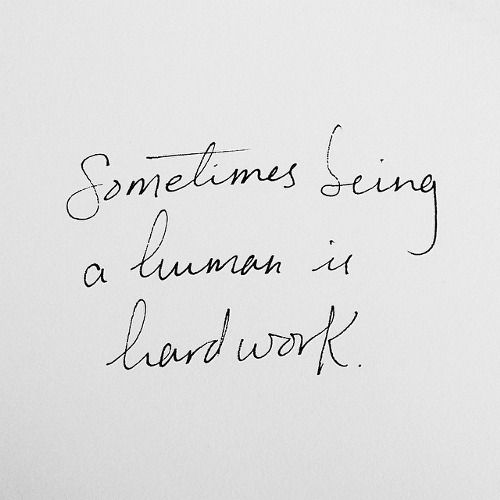 Sometimes being
a human is
hard work.